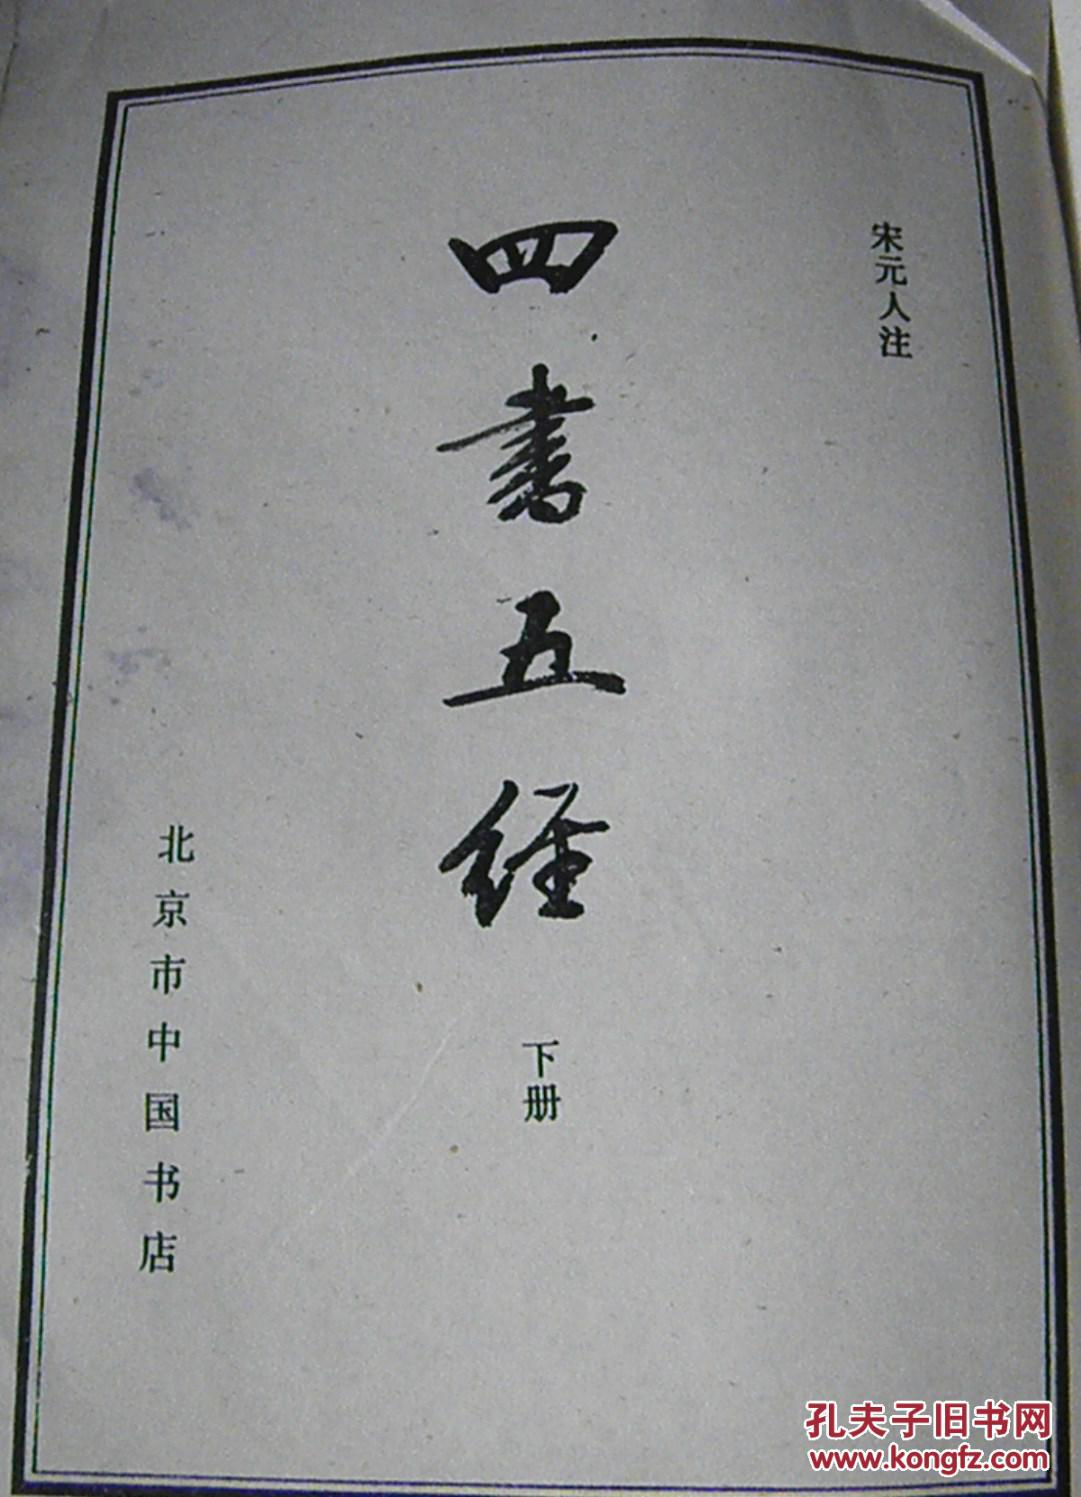 宋元人注
四書五経
下册
北京市中国书店
孔夫子旧书网
www.kongfz.com